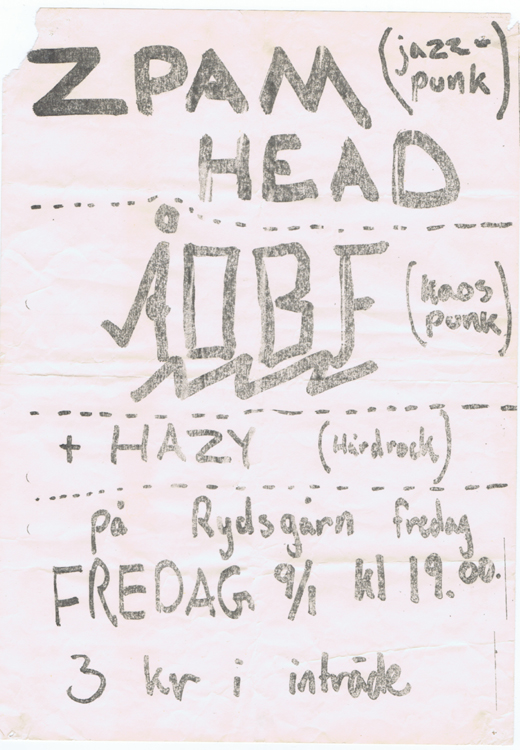 ZPAM (jazz-
punk)
HEAD
ÅOBF (kaos
punk)
+ HAZY (Hårdrock)
på Rydsgårn fredag
FREDAG 9/1 kl 19.00.
3 kr i inträde